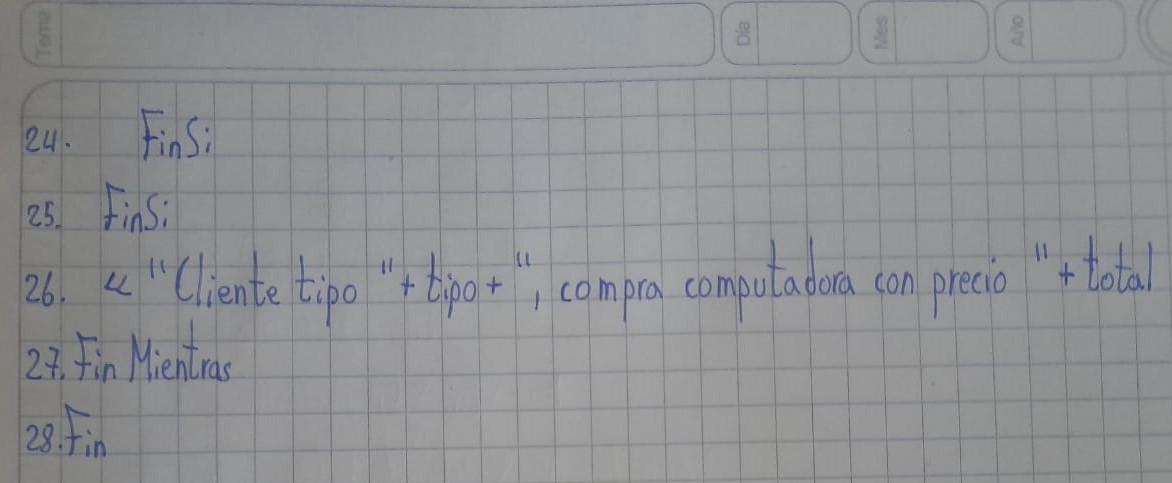 Tema Día Mes Año
24. FinSi
25. FinSi
26. << "Cliente tipo "+ tipo + ", compra computadora con precio "+ total
27. Fin Mientras
28. Fin